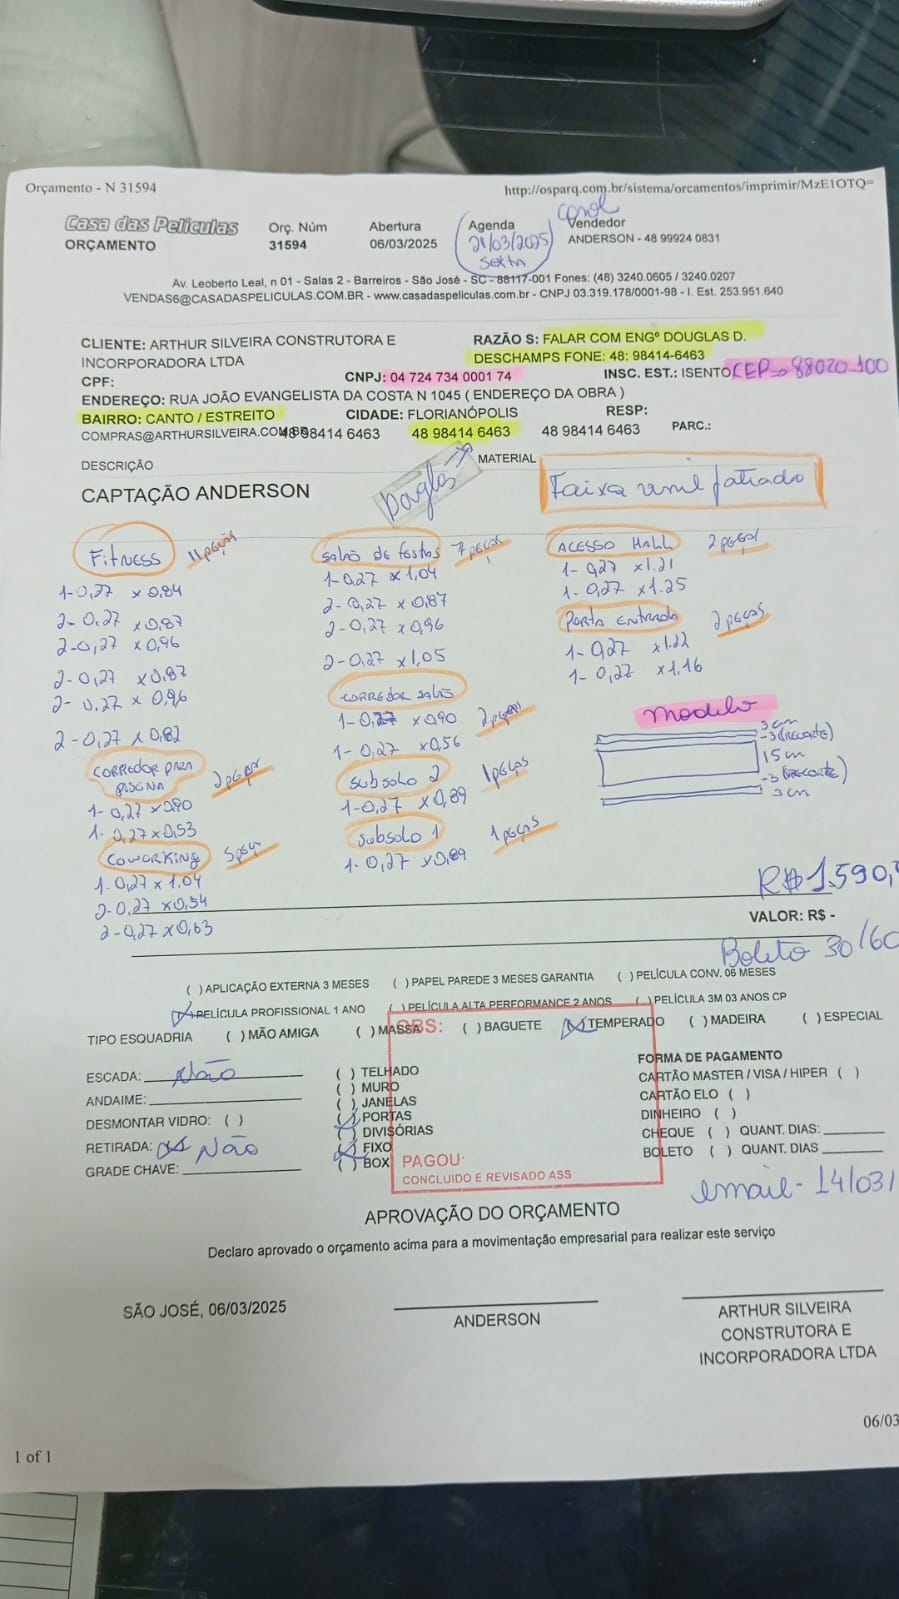 Orçamento - N 31594
http://osparq.com.br/sistema/orcamentos/imprimir/MzE1OTQ=
Casa das Películas
ORÇAMENTO
Orç. Núm
31594
Abertura
06/03/2025
Agenda
21/03/2025
Sexta
Carol
Vendedor
ANDERSON - 48 99924 0831
Av. Leoberto Leal, n 01 - Salas 2 - Barreiros - São José - SC - 88117-001 Fones: (48) 3240.0605 / 3240.0207
VENDAS6@CASADASPELICULAS.COM.BR - www.casadaspeliculas.com.br - CNPJ 03.319.178/0001-98 - I. Est. 253.951.640
CLIENTE: ARTHUR SILVEIRA CONSTRUTORA E
INCORPORADORA LTDA
RAZÃO S: FALAR COM ENGº DOUGLAS D.
DESCHAMPS FONE: 48: 98414-6463
CPF:
CNPJ: 04 724 734 0001 74
INSC. EST.: ISENTO
CEP → 88020-100
ENDEREÇO: RUA JOÃO EVANGELISTA DA COSTA N 1045 ( ENDEREÇO DA OBRA )
BAIRRO: CANTO / ESTREITO
CIDADE: FLORIANÓPOLIS
RESP:
COMPRAS@ARTHURSILVEIRA.COM.BR
48 98414 6463
48 98414 6463
48 98414 6463
PARC.:
DESCRIÇÃO
MATERIAL
CAPTAÇÃO ANDERSON
Douglas
Faixa vinil fatiado
Fitness 11 peças
1-0,27 x 0,84
2-0.27 x 0,87
2-0,27 x 0,96
2-0,27 x 0,87
2-0,27 x 0,96
2-0,27 x 0,82
CORREDOR PARA
PISCINA 2 peças
1-0,27 x 0,90
1-0,27 x 0,53
COWORKING 5 peças
1-0,27 x 1.04
2-0,27 x 0,54
2-0,27 x 0,63
Salão de Festas 7 peças
1-0,27 x 1,04
2-0,27 x 0,87
2-0,27 x 0,96
2-0,27 x 1,05
CORREDOR Salão
1-0,27 x 0,90 2 peças
1-0,27 x 0,56
Subsolo 2 1 peças
1-0,27 x 0,89
Subsolo 1 1 peças
1-0,27 x 0,89
ACESSO HALL 2 peças
1-0,27 x 1.21
1-0,27 x 1.25
PORTA ENTRADA 2 peças
1-0,27 x 1.22
1-0,27 x 1,16
modelo
3 cm
-3 (RECORTE)
15 cm
-3 (RECORTE)
3 cm
R$ 1.590,
VALOR: R$ -
Boleto 30/60
( ) APLICAÇÃO EXTERNA 3 MESES ( ) PAPEL PAREDE 3 MESES GARANTIA ( ) PELÍCULA CONV. 06 MESES
(X) PELÍCULA PROFISSIONAL 1 ANO ( ) PELÍCULA ALTA PERFORMANCE 2 ANOS ( ) PELÍCULA 3M 03 ANOS CP
TIPO ESQUADRIA ( ) MÃO AMIGA ( ) MASSA ( ) BAGUETE (X) TEMPERADO ( ) MADEIRA ( ) ESPECIAL
OBS:
ESCADA: Não
ANDAIME:
DESMONTAR VIDRO: ( )
RETIRADA: Não
GRADE CHAVE:
( ) TELHADO
( ) MURO
( ) JANELAS
(X) PORTAS
( ) DIVISÓRIAS
(X) FIXO
( ) BOX
PAGOU:
CONCLUIDO E REVISADO ASS
FORMA DE PAGAMENTO
CARTÃO MASTER / VISA / HIPER ( )
CARTÃO ELO ( )
DINHEIRO ( )
CHEQUE ( ) QUANT. DIAS:
BOLETO ( ) QUANT. DIAS
email - 14/03/
APROVAÇÃO DO ORÇAMENTO
Declaro aprovado o orçamento acima para a movimentação empresarial para realizar este serviço
SÃO JOSÉ, 06/03/2025
ANDERSON
ARTHUR SILVEIRA
CONSTRUTORA E
INCORPORADORA LTDA
06/03
1 of 1